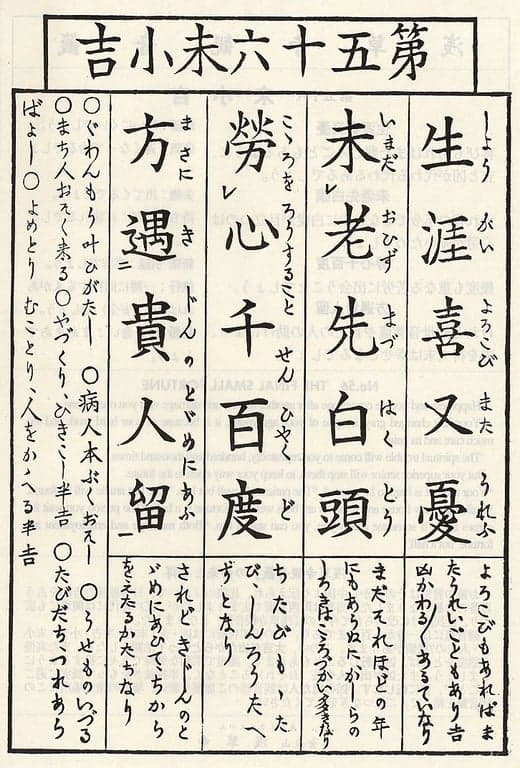 第五十六末小吉
しょう がい よろこび また うれふ
生涯喜又憂
よろこびもあればま
たうれいごともあり吉
凶かわる〲あるていなり
いまだ おひず まづ はく とう
未レ老先白頭
まだそれほどの年
にもあらぬに、かしらの
しろきはこゝろづかい多きなり
こゝろを ろうすること せん ひやく ど
勞レ心千百度
ちたびもゝた
び しんろうたへ
ずとなり
まさに き じんの とゞめにあふ
方遇二貴人留一
されどきじんのと
ゞめにあひてちから
をえたるかたちなり
〇ぐわんもう叶ひがた 〇病人本ぶくおそし 〇うせものいづる
〇まち人おそく来る〇やづくり、ひきこし半吉〇たびだちつれあら
ばよし〇よめとり むことり、人をかゝへる半吉